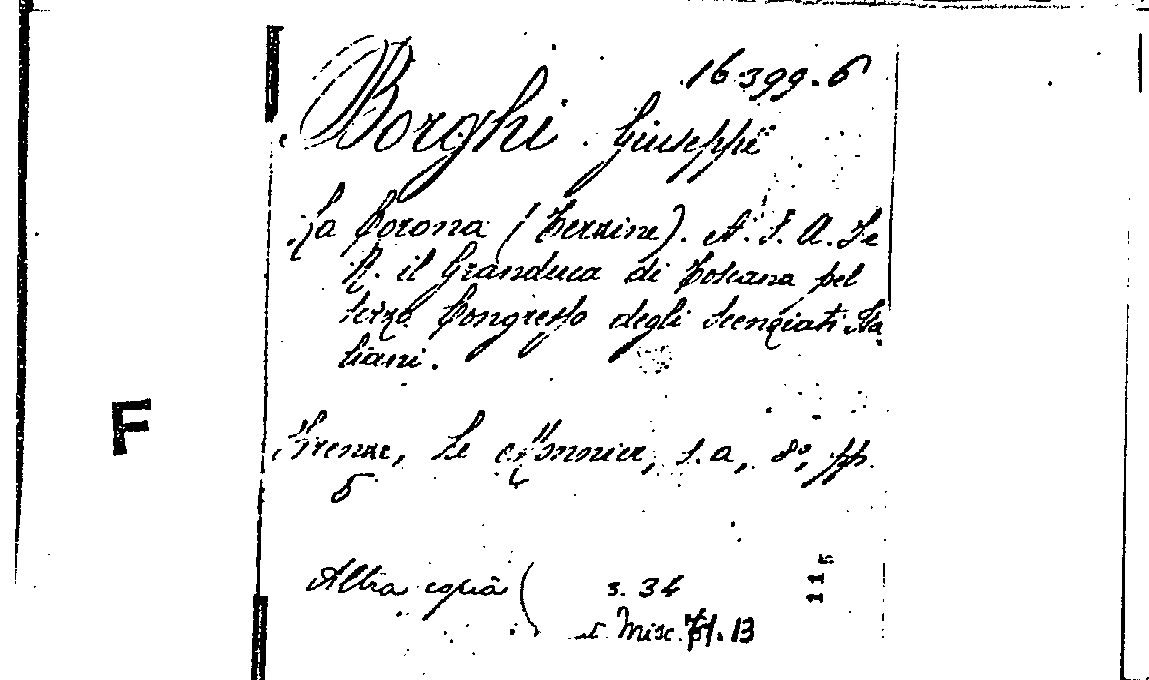 16399.6
Borghi Giuseppe
La Corona (Terzine). A. S. A. I. e
R. il Granduca di Toscana pel
terzo Congresso degli Scenziati Ita
liani.
F
Firenze, Le Monnier, s.a, 8°, pp.
6
115
Altra copia ( s. 34
Misc. .13